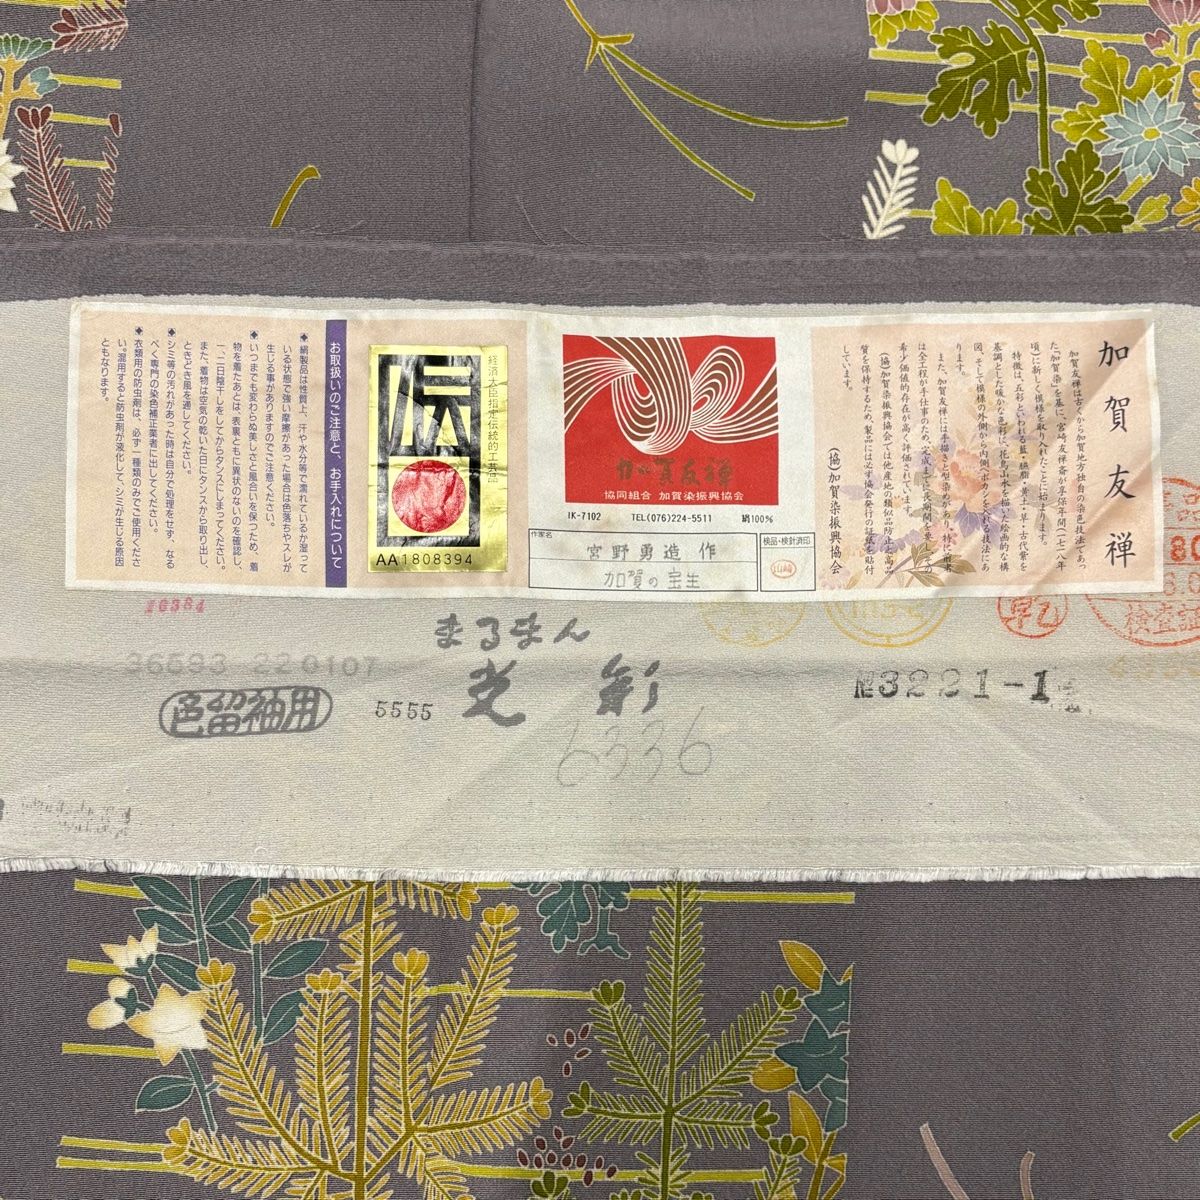 加賀友禅
加賀友禅は古くから加賀地方独自の染色技法であっ
た『加賀染』を基に、宮崎友禅斎が享保年間(一七一八年
頃)に新しく模様を取り入れたことに始まります。
特徴は、五彩といわれる藍・臙脂・黄土・草・古代紫を
基調とした暖かな色彩に、花鳥山水を描いた絵画的な構
図、そして模様の外側から内側へボカシを入れる技法にあ
ります。
また、加賀友禅には手描きと型染めがあり、特に前者
は全工程が手仕事のため、完成までに長期間を要しての
希少価値的存在が高く評価されています。
(協)加賀染振興協会では他産地の類似品防止と高品
質を保持するため、製品には必ず協会発行の証紙を貼付
しています。
(協)加賀染振興協会
加賀友禅
協同組合 加賀染振興協会
IK-7102 TEL(076)224-5511 絹100%
作家名
宮野勇造 作
加賀の宝生
検品・検針済印
山崎
経済大臣指定伝統的工芸品
伝
AA1808394
お取扱いのご注意と、お手入れについて
◆絹製品は性質上、汗や水分等で濡れているか湿って
いる状態で強い摩擦があった場合は色落ちやスレが
生じる事がありますのでご注意ください。
◆いつまでも変わらぬ美しさと風合いを保つため、着
物を着たあとは、表裏ともに異状のないのを確認し、
一、二日陰干しをしてからタンスにしまってください。
また、着物は空気の乾いた日にタンスから取り出し、
ときどき風を通してください。
◆シミ等の汚れがあった時は自分で処理をせず、なる
べく専門の染色補正業者に出してください。
◆衣類用の防虫剤は、必ず一種類のみでご使用くださ
い。混用すると防虫剤が液化して、シミが生じる原因
ともなります。
16384
まるまん
36593 220107
色留袖用
5555
光彩
6336
№3221-1
検査証